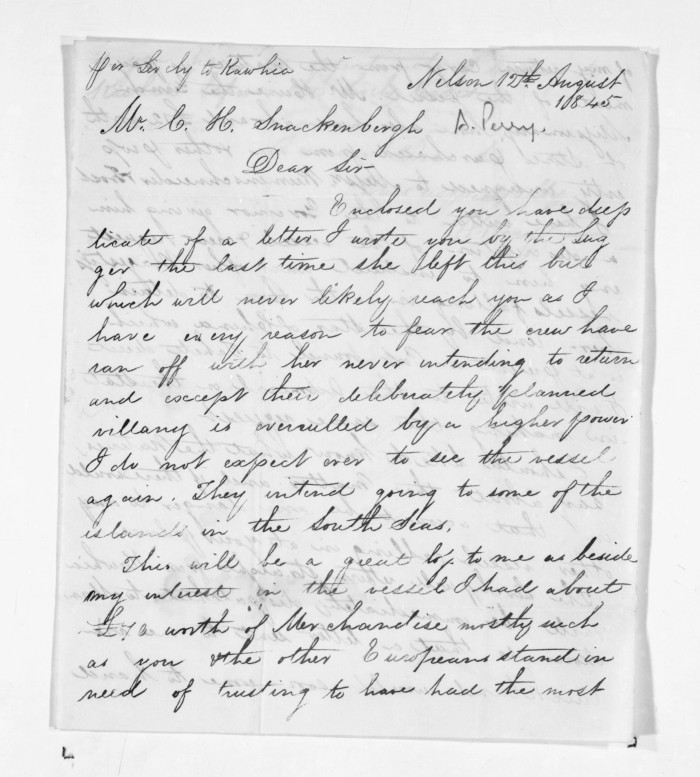 to Kawhia
Nelson 12th August
1845
Mr. C. H. Snackenbergh A. Perry
Dear Sir
Enclosed you have dup
licate of a letter I wrote you by the Lug
ger the last time she left this but
which will never likely reach you as I
have every reason to fear the crew have
ran off with her never intending to return
and except their deliberately planned
villany is overulled by a higher power
I do not expect ever to see the vessel
again. They intend going to some of the
islands in the South Seas.
This will be a great loss to me as beside
my interest in the vessel I had about
worth of Merchandise mostly such
as you & the other Europeans stand in
need of trusting to have had the most